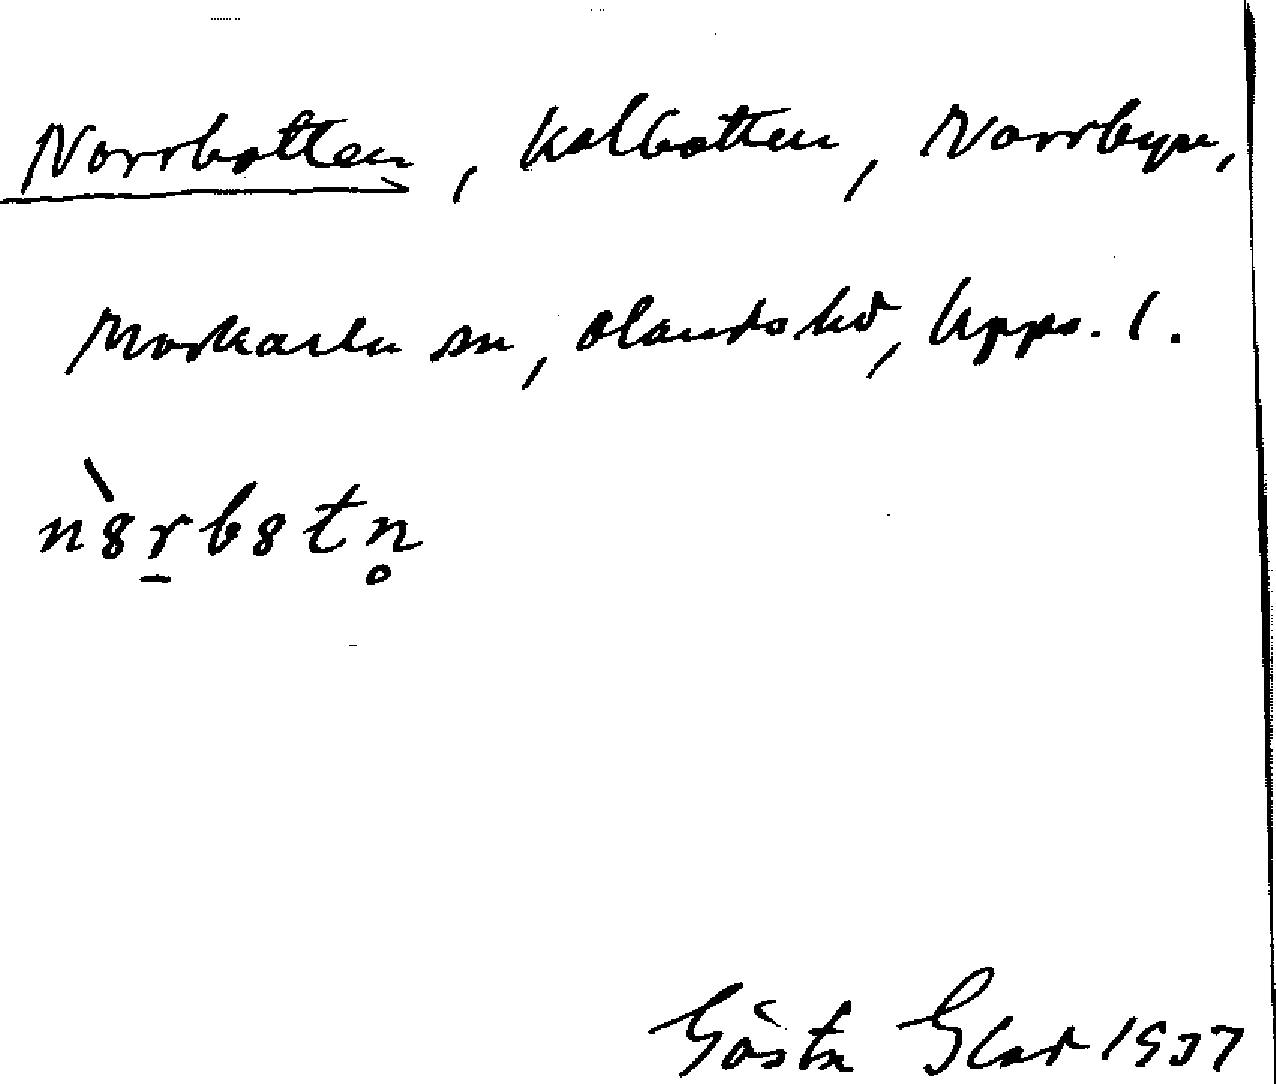 Norrbotten, kolbotten, Norrbyn,
Morkarla sn, Olands hd, Upps. l.
n8̀r̠b8tn̥
Gösta Glad 1937